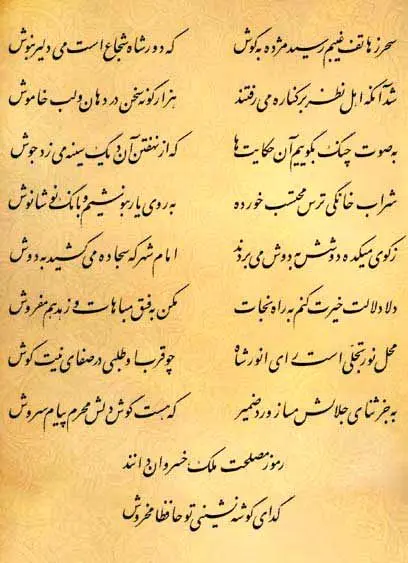 سحر ز هاتف غیبم رسید مژده به گوش که دور شاه شجاع است می دلیر بنوش
شد آنکه اهل نظر بر کناره می رفتند هزار گونه سخن در دهان و لب خاموش
به صوت چنگ بگوییم آن حکایت ها که از نهفتن آن دیگ سینه می زد جوش
شراب خانگی ترس محتسب خورده به روی یار بنوشیم و بانگ نوشانوش
ز کوی میکده دوشش به دوش می بردند امام شهر که سجاده می کشید به دوش
دلا دلالت خیرت کنم به راه نجات مکن به فسق مباهات و زهد هم مفروش
محل نور تجلی است رای انور شاه چو قرب او طلبی در صفای نیت کوش
به جز ثنای جلالش مساز ورد ضمیر که هست گوش دلش محرم پیام سروش
رموز مصلحت ملک خسروان دانند
گدای گوشه نشینی تو حافظا مخروش